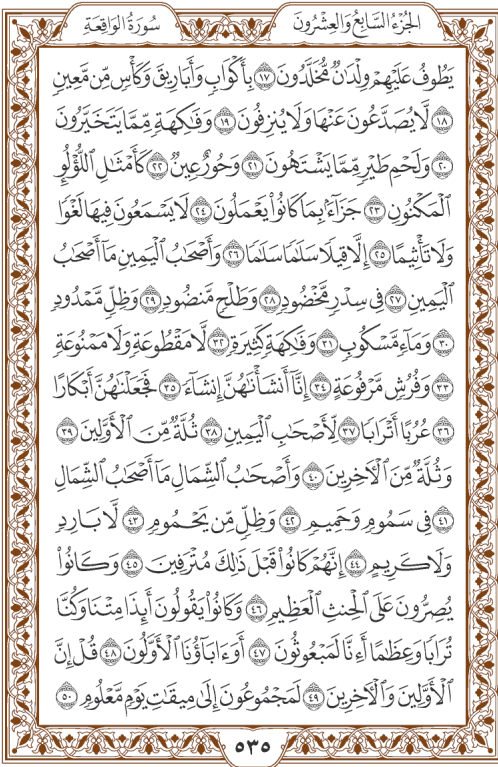 الجُزءُ السَّابِعُ وَالعِشْرُونَ
سُورَةُ الوَاقِعَة
يَطُوفُ عَلَيْهِمْ وِلْدَٰنٌ مُّخَلَّدُونَ ١٧ بِأَكْوَابٖ وَأَبَارِيقَ وَكَأْسٖ مِّن مَّعِينٖ
١٨ لَّا يُصَدَّعُونَ عَنْهَا وَلَا يُنزِفُونَ ١٩ وَفَٰكِهَةٖ مِّمَّا يَتَخَيَّرُونَ
٢٠ وَلَحْمِ طَيْرٖ مِّمَّا يَشْتَهُونَ ٢١ وَحُورٌ عِينٌ ٢٢ كَأَمْثَٰلِ اللُّؤْلُوِٕ
الْمَكْنُونِ ٢٣ جَزَآءَۢ بِمَا كَانُوا۟ يَعْمَلُونَ ٢٤ لَا يَسْمَعُونَ فِيهَا لَغْوٗا
وَلَا تَأْثِيمًا ٢٥ إِلَّا قِيلٗا سَلَٰمٗا سَلَٰمٗا ٢٦ وَأَصْحَٰبُ الْيَمِينِ مَآ أَصْحَٰبُ
الْيَمِينِ ٢٧ فِي سِدْرٖ مَّخْضُودٖ ٢٨ وَطَلْحٖ مَّنضُودٖ ٢٩ وَظِلّٖ مَّمْدُودٖ
٣٠ وَمَآءٖ مَّسْكُوبٖ ٣١ وَفَٰكِهَةٖ كَثِيرَةٖ ٣٢ لَّا مَقْطُوعَةٖ وَلَا مَمْنُوعَةٖ
٣٣ وَفُرُشٖ مَّرْفُوعَةٍ ٣٤ إِنَّآ أَنشَأْنَٰهُنَّ إِنشَآءٗ ٣٥ فَجَعَلْنَٰهُنَّ أَبْكَارًا
٣٦ عُرُبًا أَتْرَابٗا ٣٧ لِّأَصْحَٰبِ الْيَمِينِ ٣٨ ثُلَّةٞ مِّنَ الْأَوَّلِينَ ٣٩
وَثُلَّةٞ مِّنَ الْأٓخِرِينَ ٤٠ وَأَصْحَٰبُ الشِّمَالِ مَآ أَصْحَٰبُ الشِّمَالِ
٤١ فِي سَمُومٖ وَحَمِيمٖ ٤٢ وَظِلّٖ مِّن يَحْمُومٖ ٤٣ لَّا بَارِدٖ
وَلَا كَرِيمٍ ٤٤ إِنَّهُمْ كَانُوا۟ قَبْلَ ذَٰلِكَ مُتْرَفِينَ ٤٥ وَكَانُوا۟
يُصِرُّونَ عَلَى الْحِنثِ الْعَظِيمِ ٤٦ وَكَانُوا۟ يَقُولُونَ أَئِذَا مِتْنَا وَكُنَّا
تُرَابٗا وَعِظَٰمًا أَءِنَّا لَمَبْعُوثُونَ ٤٧ أَوَءَابَآؤُنَا الْأَوَّلُونَ ٤٨ قُلْ إِنَّ
الْأَوَّلِينَ وَالْأٓخِرِينَ ٤٩ لَمَجْمُوعُونَ إِلَىٰ مِيقَٰتِ يَوْمٖ مَّعْلُومٖ ٥٠
٥٣٥